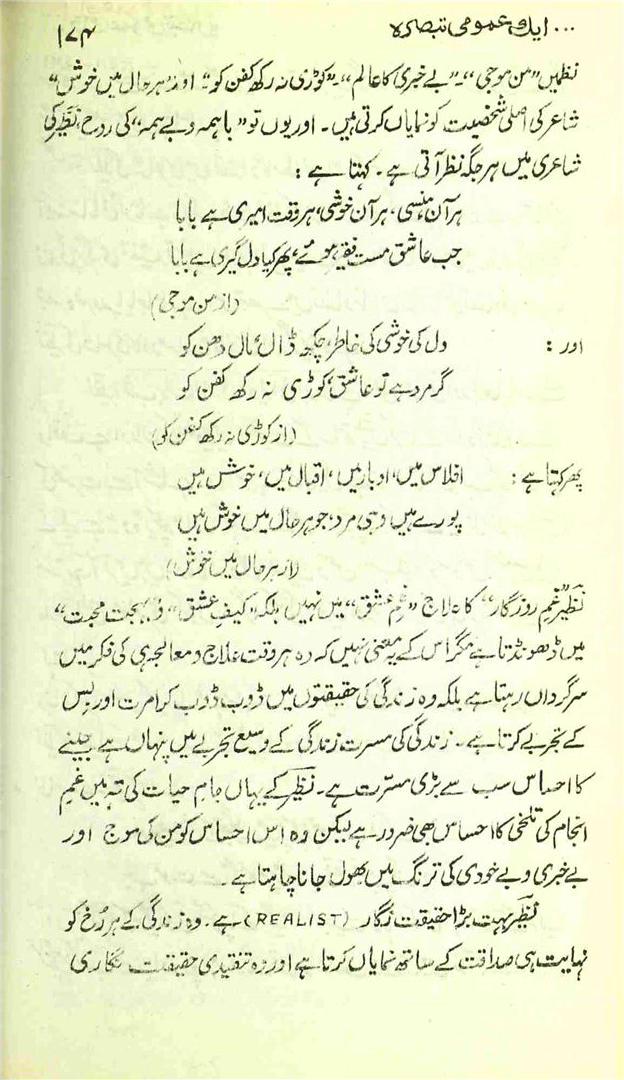 ... ایک عمومی تبصرہ
۱۷۴
نظمیں "من موجی"۔ "بے خبری کا عالم"۔ "کوڑی نہ رکھ کفن کو" اور "ہر حال میں خوش"
شاعر کی اصلی شخصیت کو نمایاں کرتی ہیں۔ اور یوں تو "باہمہ و بے ہمہ" کی روح، نظیر کی
شاعری میں ہر جگہ نظر آتی ہے۔ کہتا ہے :
ہر آن ہنسی، ہر آن خوشی، ہر وقت امیری ہے بابا
جب عاشق مست فقیر ہوئے، پھر کیا دل گیری ہے بابا
(از من موجی)
اور : دل کی خوشی کی خاطر، چکھ ڈال مال دھن کو
گر مرد ہے تو عاشق، کوڑی نہ رکھ کفن کو
(از کوڑی نہ رکھ کفن کو)
پھر کہتا ہے : افلاس میں، ادبار میں، اقبال میں، خوش ہیں
پورے ہیں وہی مرد، جو ہر حال میں خوش ہیں
(از ہر حال میں خوش)
نظیر "غم روزگار" کا علاج "غم عشق" میں نہیں بلکہ "کیف عشق" و "بہجت محبت"
میں ڈھونڈتا ہے مگر اس کے یہ معنی نہیں کہ وہ ہر وقت علاج و معالجہ ہی کی فکر میں
سرگرداں رہتا ہے بلکہ وہ زندگی کی حقیقتوں میں ڈوب ڈوب کر امرت اور بس
کے تجربے کرتا ہے۔ زندگی کی مسرت زندگی کے وسیع تجربے میں پنہاں ہے جینے
کا احساس سب سے بڑی مسرت ہے۔ نظیر کے یہاں جام حیات کی تہ میں غمِ
انجام کی تلخی کا احساس بھی ضرور ہے لیکن وہ اس احساس کو من کی موج اور
بے خبری و بے خودی کی ترنگ میں بھول جانا چاہتا ہے۔
نظیر بہت بڑا حقیقت نگار (REALIST) ہے۔ وہ زندگی کے ہر رُخ کو
نہایت ہی صداقت کے ساتھ نمایاں کرتا ہے اور وہ تنقیدی حقیقت نگاری